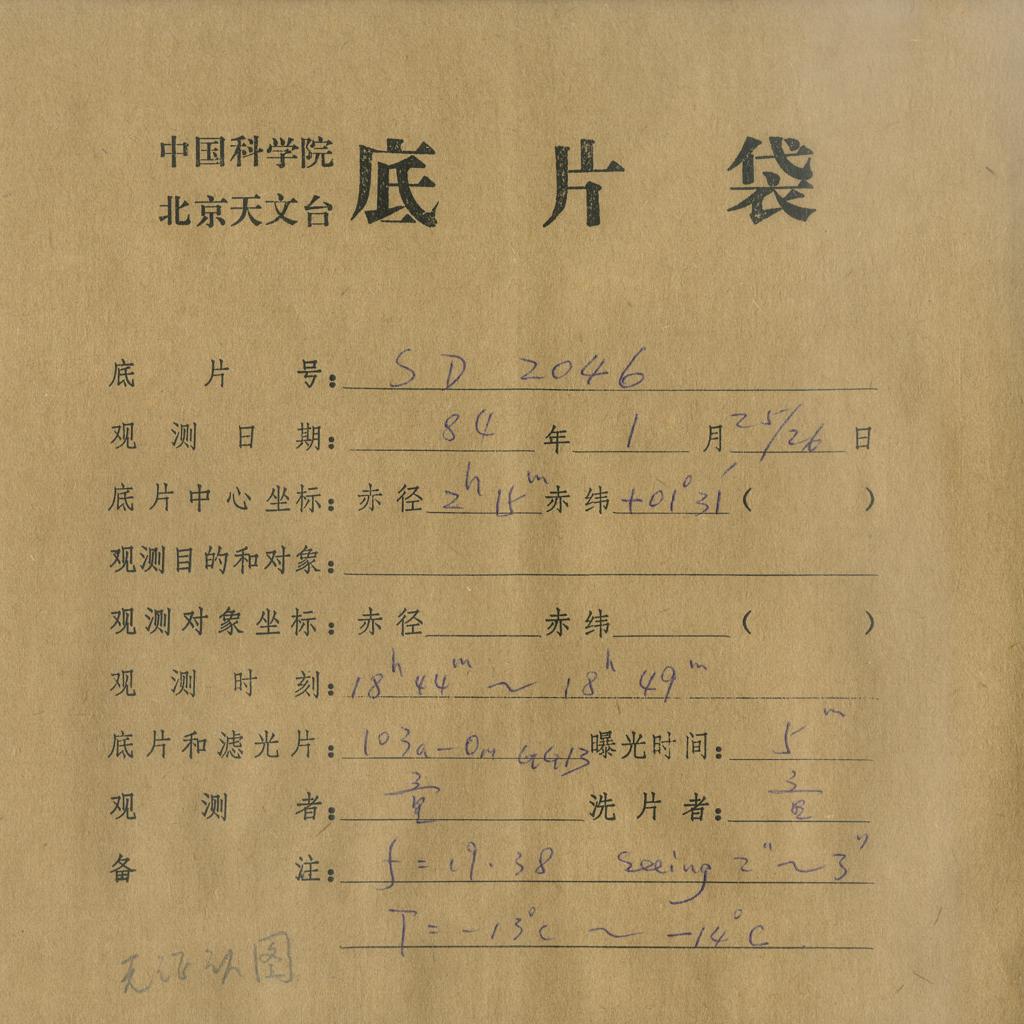 中国科学院
北京天文台
底片袋
底片号: SD 2046
观测日期: 84年1月25/26日
底片中心坐标: 赤径 2h 15m 赤纬 +01°31′ ( )
观测目的和对象:
观测对象坐标: 赤径 赤纬 ( )
观测时刻: 18h 44m ~ 18h 49m
底片和滤光片: 103a-O GG13 曝光时间: 5m
观测者: 洗片者:
备注: f=19.38 seeing 2"~3"
T=-13°C ~ -14°C
无证认图